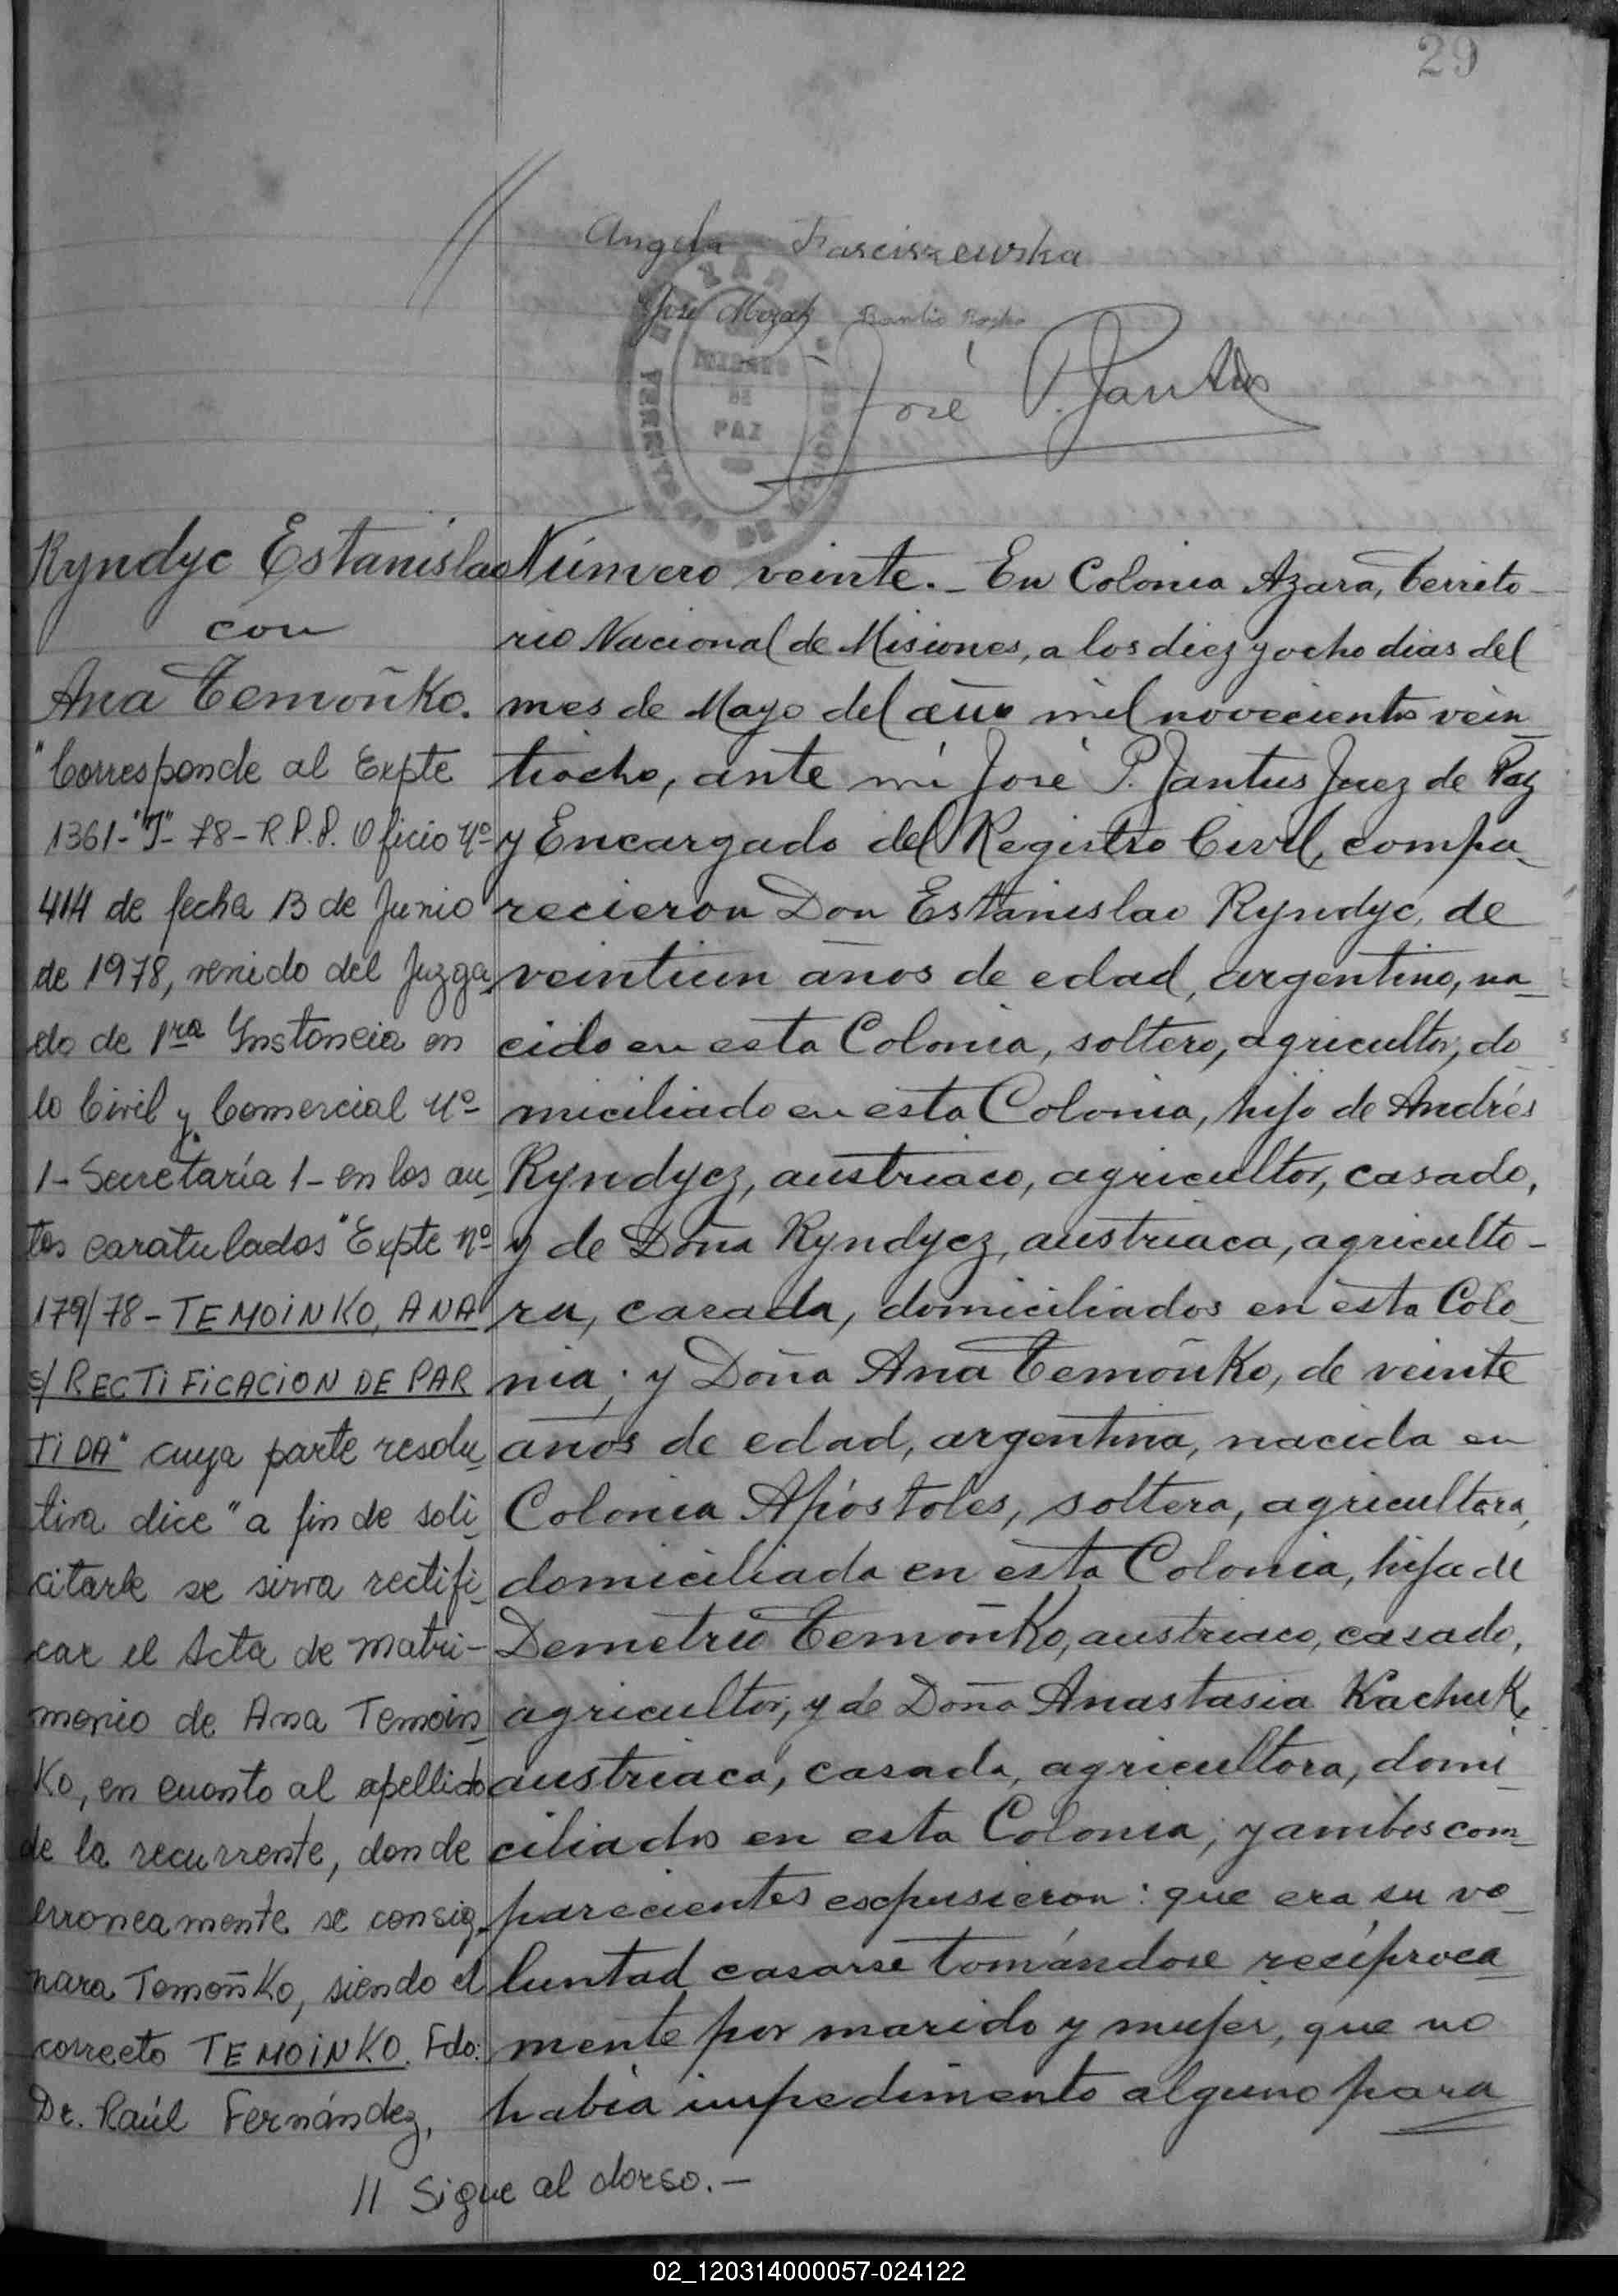 29
Angela Franciszewska
José Mozak
José P. Jantus
JUZGADO
DE
PAZ
Ryndyc Estanislao
con
Ana Temoñko.
"Corresponde al Expte
1361-"T"-78-R.P.P. Oficio Nº
414 de fecha 13 de Junio
de 1978, venido del Juzga-
do de 1ra Instancia en
lo Civil y Comercial Nº
1- Secretaría 1- en los au-
tos caratulados "Expte Nº
179/78 - TEMOINKO, ANA
s/ RECTIFICACION DE PAR
TIDA" cuya parte resolu-
tiva dice "a fin de soli-
citarle se sirva rectifi-
car el Acta de Matri-
monio de Ana Temoin-
Ko, en cuanto al apellido
de la recurrente, donde
erroneamente se consig-
nara Temoñko, siendo el
correcto TEMOINKO. Fdo:
Dr. Raúl Fernández,
// Sigue al dorso.-
Número veinte.- En Colonia Azara, Territo-
rio Nacional de Misiones, a los diez y ocho dias del
mes de Mayo del año mil novecientos vein-
tiocho, ante mi José P. Jantus Juez de Paz
y Encargado del Registro Civil, compa-
recieron Don Estanislao Ryndyc, de
veintiun años de edad, argentino, na-
cido en esta Colonia, soltero, agricultor, do-
miciliado en esta Colonia, hijo de Andrés
Ryndycz, austriaco, agricultor, casado,
y de Doña Ryndycz, austriaca, agriculto-
ra, casada, domiciliados en esta Colo-
nia; y Doña Ana Temoñko, de veinte
años de edad, argentina, nacida en
Colonia Apóstoles, soltera, agricultora,
domiciliada en esta Colonia, hija de
Demetrio Temoñko, austriaco, casado,
agricultor, y de Doña Anastasia Kachuk,
austriaca, casada, agricultora, domi-
ciliados en esta Colonia; y ambos com-
parecientes expusieron: que era su vo-
luntad casarse tomándose recíproca-
mente por marido y mujer, que no
habia impedimento alguno para
02_120314000057-024122